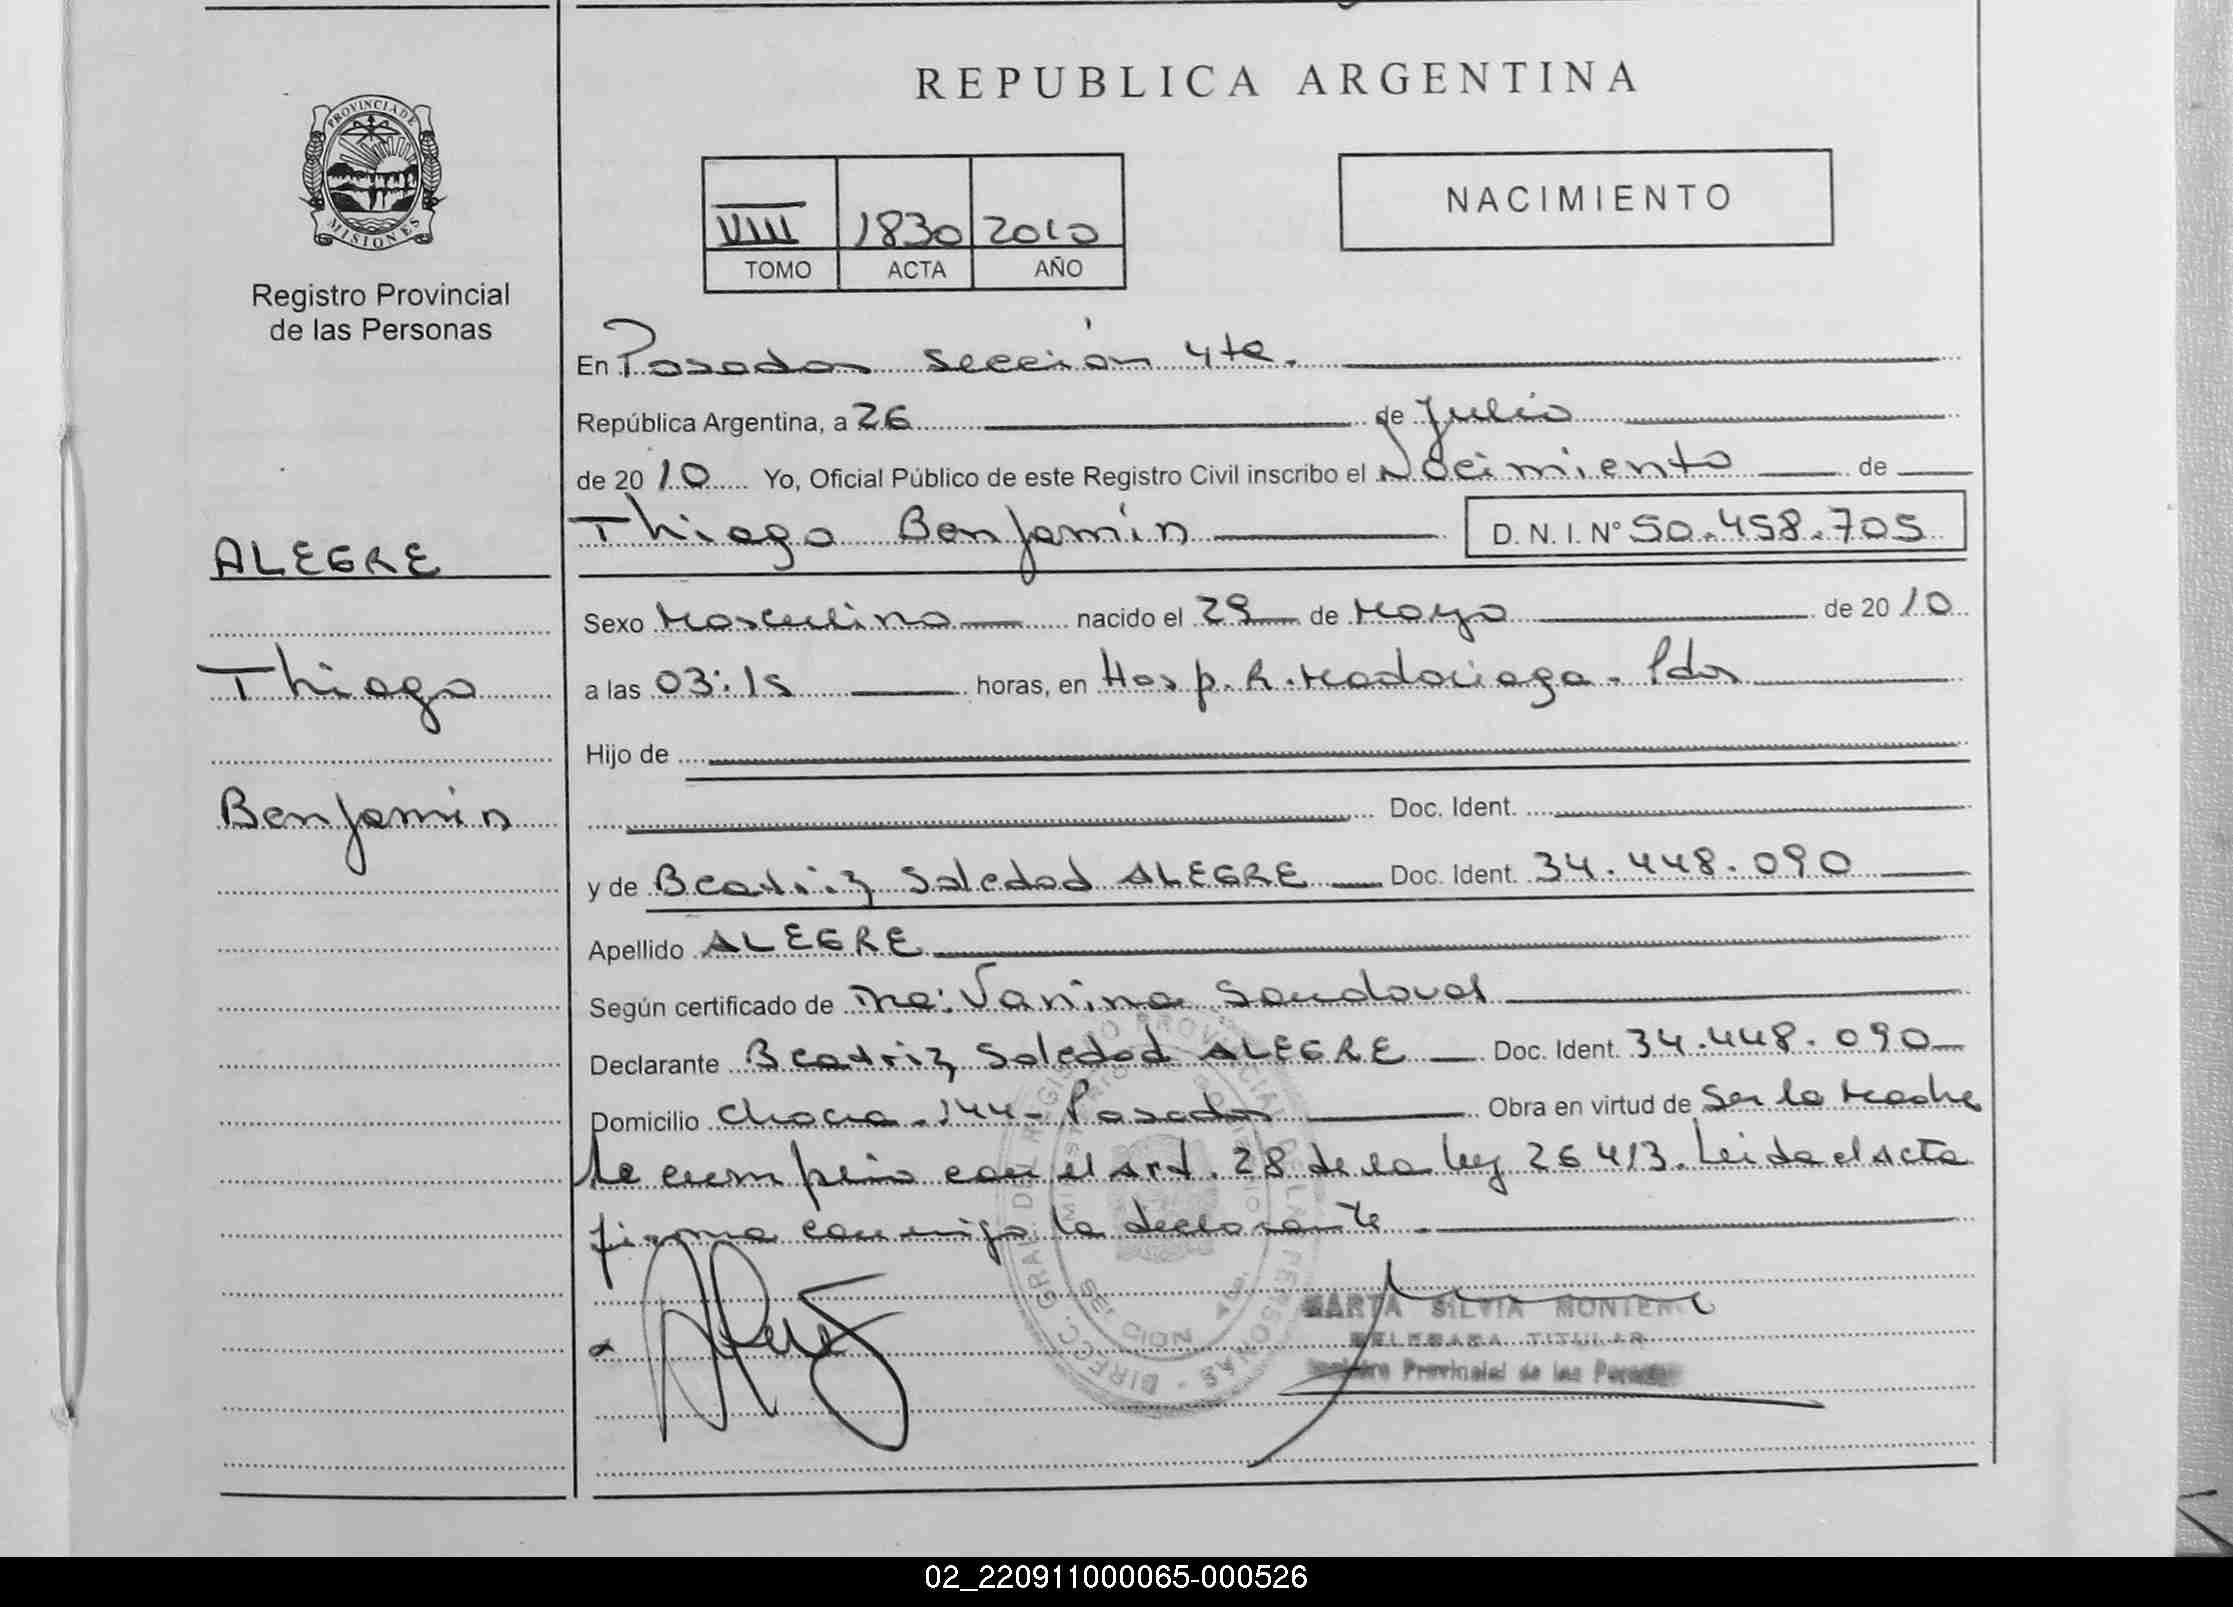 REPUBLICA ARGENTINA
PROVINCIA DE
MISIONES
Registro Provincial
de las Personas
NACIMIENTO
VIII 1830 2010
TOMO ACTA AÑO
En Posadas sección 4ta.
República Argentina, a 26 de Julio
de 2010 Yo, Oficial Público de este Registro Civil inscribo el Nacimiento de
Thiago Benjamín D. N. I. Nº 50.458.705
ALEGRE
Thiago
Benjamín
Sexo Masculino nacido el 29 de Mayo de 2010
a las 03:15 horas, en Hosp. R. Madariaga - Pdas
Hijo de
Doc. Ident.
y de Beatriz Soledad ALEGRE Doc. Ident. 34.448.090
Apellido ALEGRE
Según certificado de Vanina Sandoval
Declarante Beatriz Soledad ALEGRE Doc. Ident. 34.448.090
Domicilio Chacra 144 - Posadas Obra en virtud de Ser la Madre
Se cumplió con el art. 28 de la ley 26413. Leida el acta
firma conmigo la declarante.
MARTA SILVIA MONTER
DELEGADA TITULAR
Registro Provincial de las Personas
02_220911000065-000526